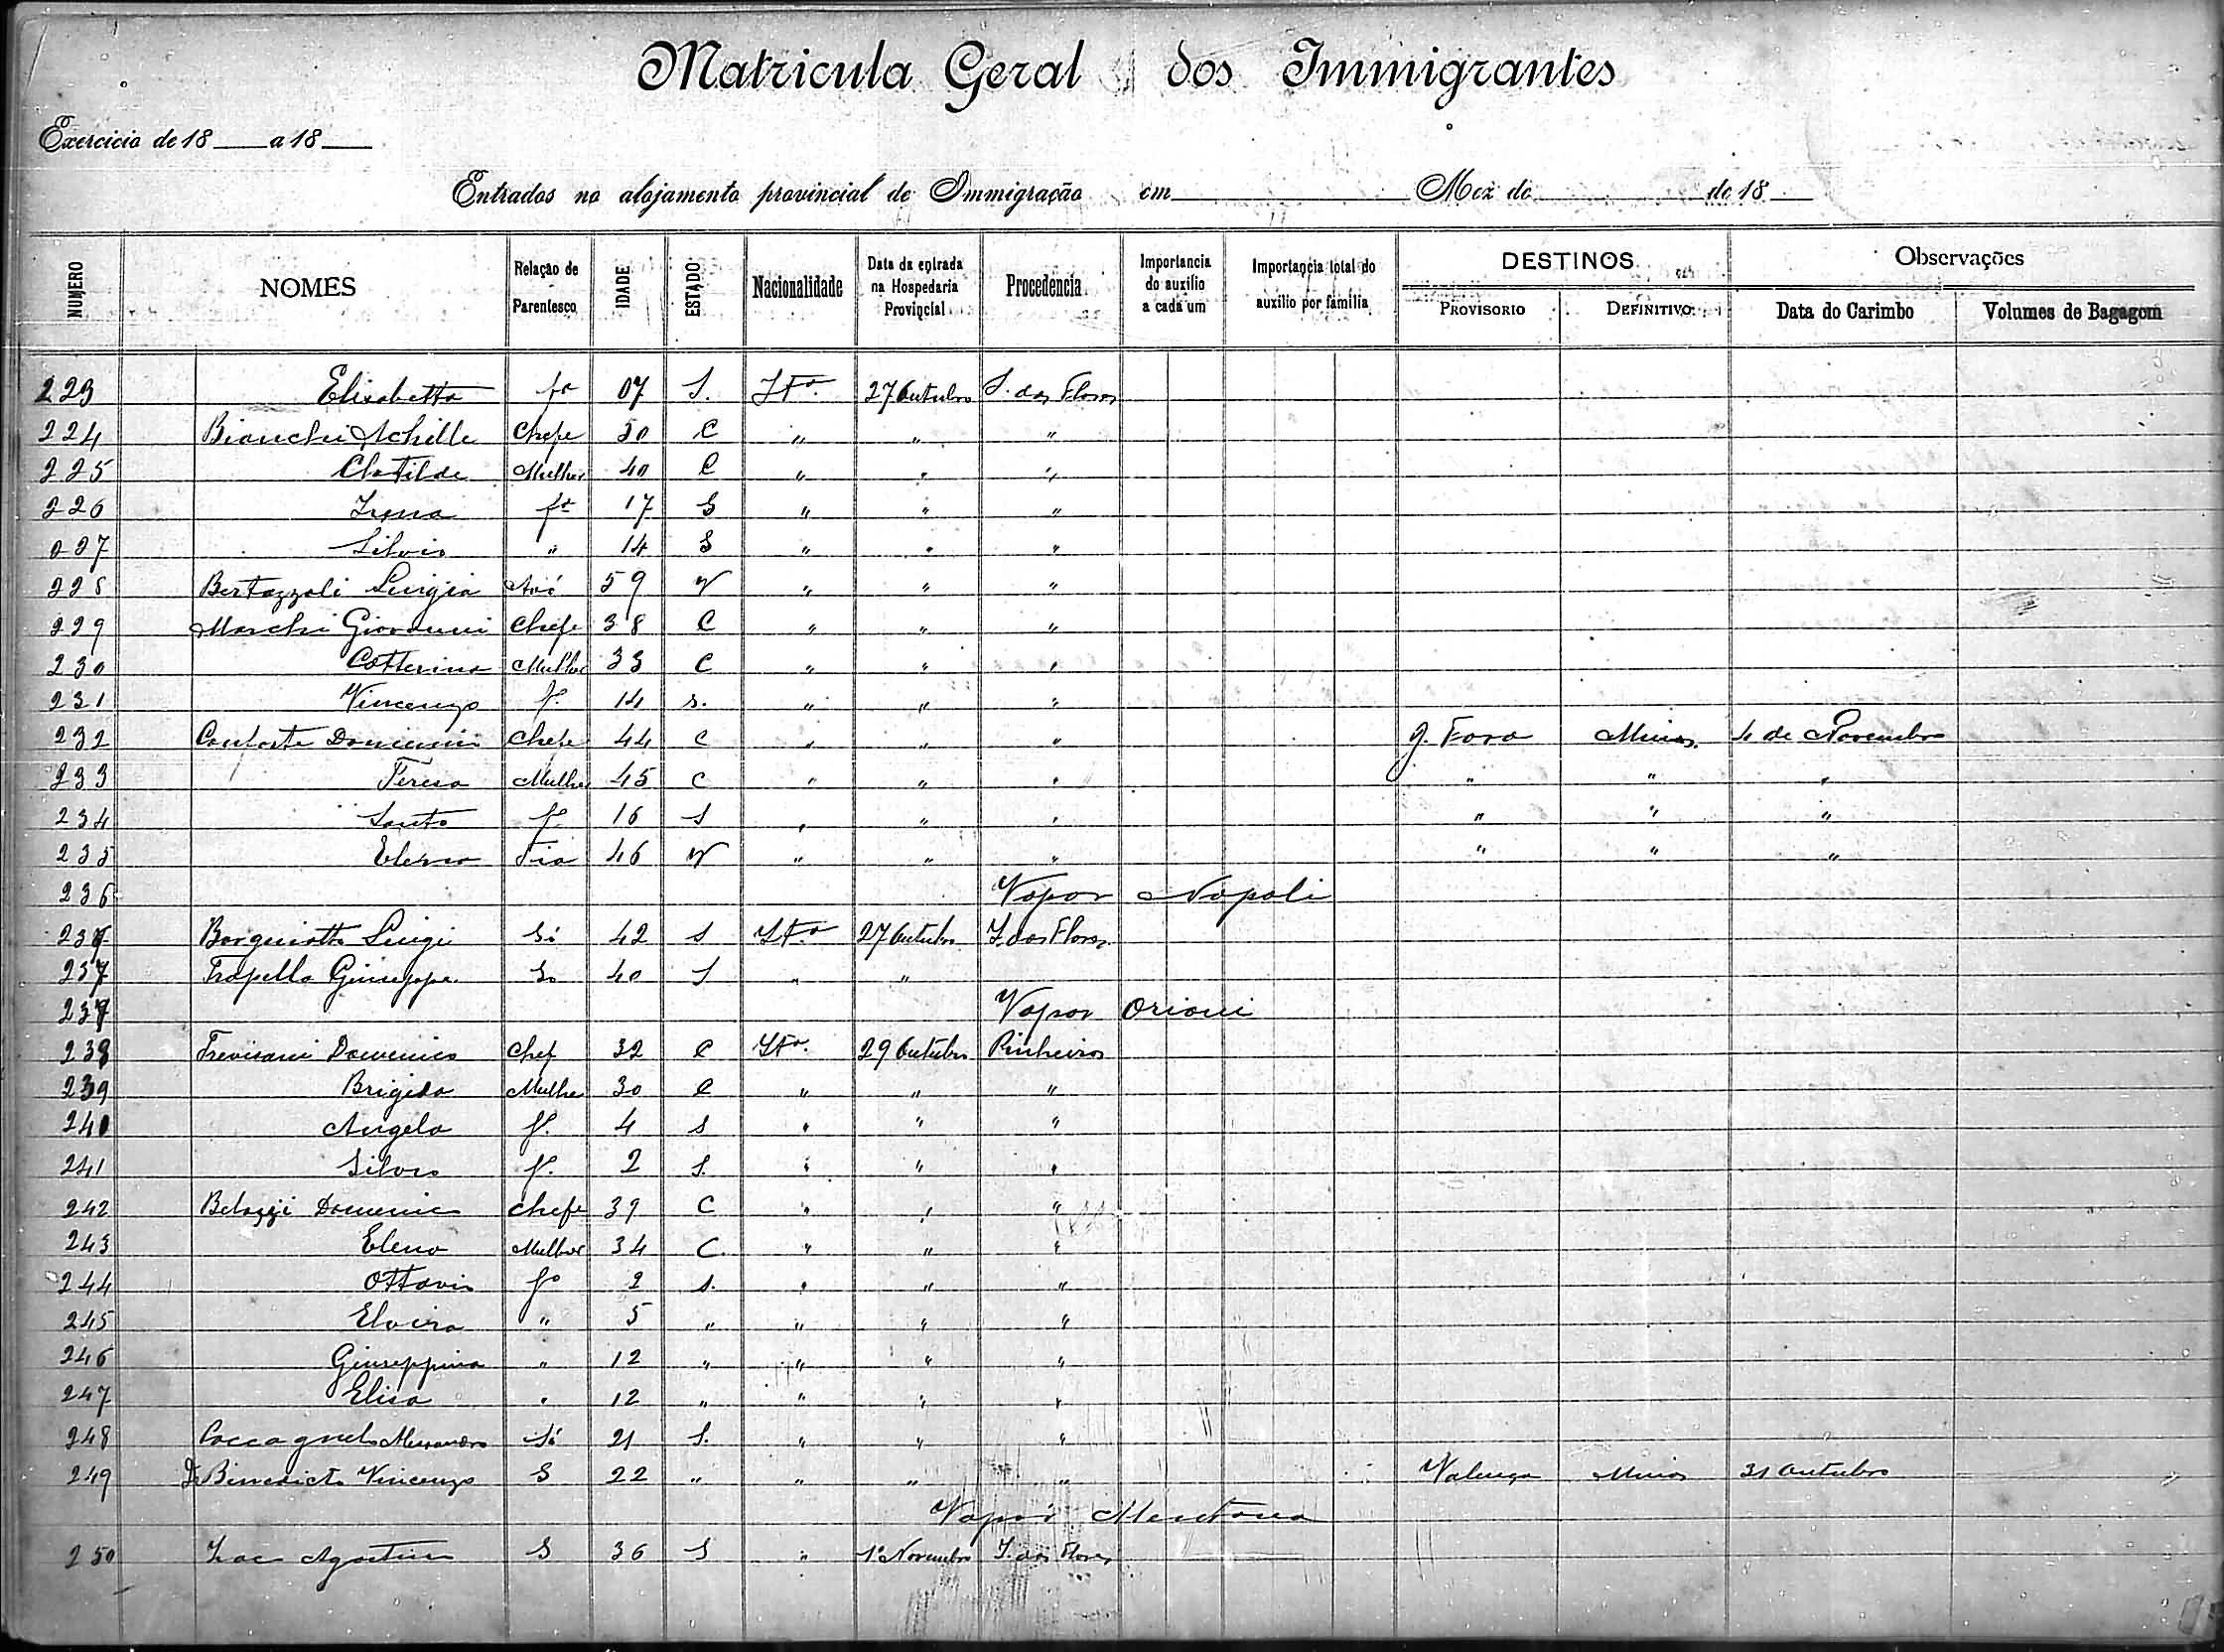 Matricula Geral dos Immigrantes
Exercicio de 18 a 18
Entrados no alojamento provincial de Immigração em Mez de de 18
NUMERO NOMES Relação de Parentesco IDADE ESTADO Nacionalidade Data da entrada na Hospedaria Provincial Procedencia Importancia do auxilio a cada um Importancia total do auxilio por familia DESTINOS Observações
PROVISORIO DEFINITIVO Data do Carimbo Volumes de Bagagem
223 Elisabetta fª 07 S. Itª. 27 Outubro I. das Flores
224 Bianchi Achille Chefe 50 C " " "
225 Clotilde Mulher 40 C " " "
226 Irena fª 17 S " " "
227 Silvio " 14 S " " "
228 Bertazzoli Luigia Avó 59 V " " "
229 Marchi Giovanni Chefe 38 C " " "
230 Catterina Mulher 33 C " " "
231 Vincenzo fº. 14 s. " " "
232 Conforte Domenico Chefe 44 C " " " J. Fora Minas 4 de Novembro
233 Teresa Mulher 45 C " " " " " "
234 Santo fº 16 S " " " " " "
235 Elena Tia 46 V " " " " " "
236 Vapor Napoli
237 Luigi Só 42 S Itª. 27 Outubro I. das Flores
237 Trapella Giuseppe So 40 S " "
237 Vapor Orioni
238 Trevisani Domenico Chef 32 C Itª. 29 Outubro Pinheiros
239 Brigida Mulher 30 C " " "
240 Angelo fº. 4 S " " "
241 Silvio fº. 2 S. " " "
242 Belozzi Domenico Chefe 39 C " " "
243 Elena Mulher 34 C. " " "
244 Ottavio fº 2 s. " " "
245 Elvira " 5 " " " "
246 Giuseppina " 12 " " " "
247 Elisa " 12 " " " "
248 Coccagnelo Alessandro Só 21 S. " " "
249 De Binedicto Vincenzo S 22 " " " " Valença Minas 31 Outubro
Vapor Mentana
250 Agostino S 36 S " 1º Novembro I. das Flores